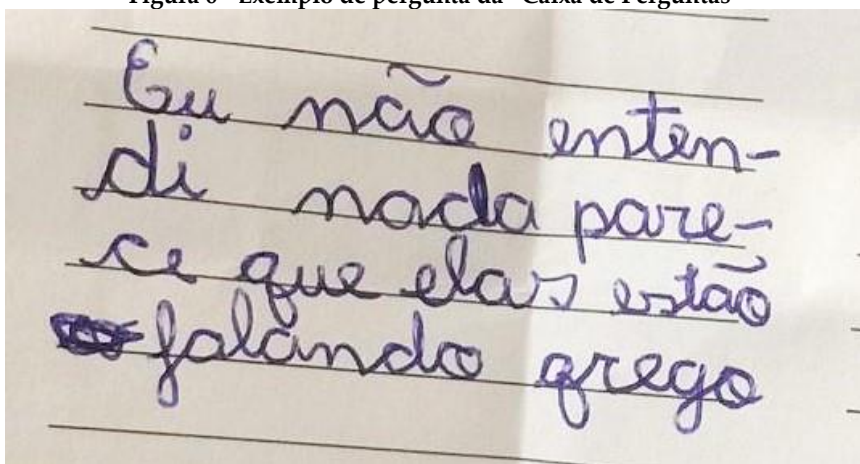 Figura 6 - Exemplo de pergunta da "Caixa de Perguntas"
Eu não enten-
di nada pare-
ce que elas estão
falando grego